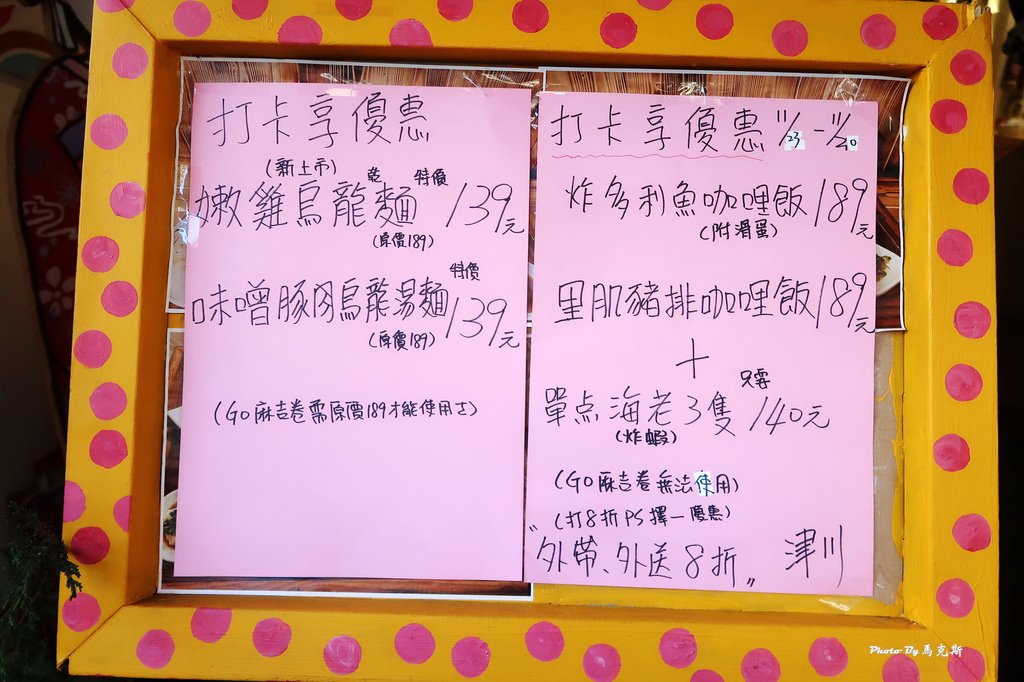 打卡享優惠
(新上市)
乾 特價
嫩雞烏龍麵 139元
(原價189)
特價
味噌豚肉烏龍湯麵 139元
(原價189)
(GO麻吉卷需原價189才能使用)
打卡享優惠 11/23-11/30
炸多利魚咖哩飯 189元
(附滑蛋)
里肌豬排咖哩飯 189元
+
只需
單点海老3隻 140元
(炸蝦)
(GO麻吉卷無法使用)
(打8折PS擇一優惠)
"外帶、外送8折" 津川
Photo By 馬克斯